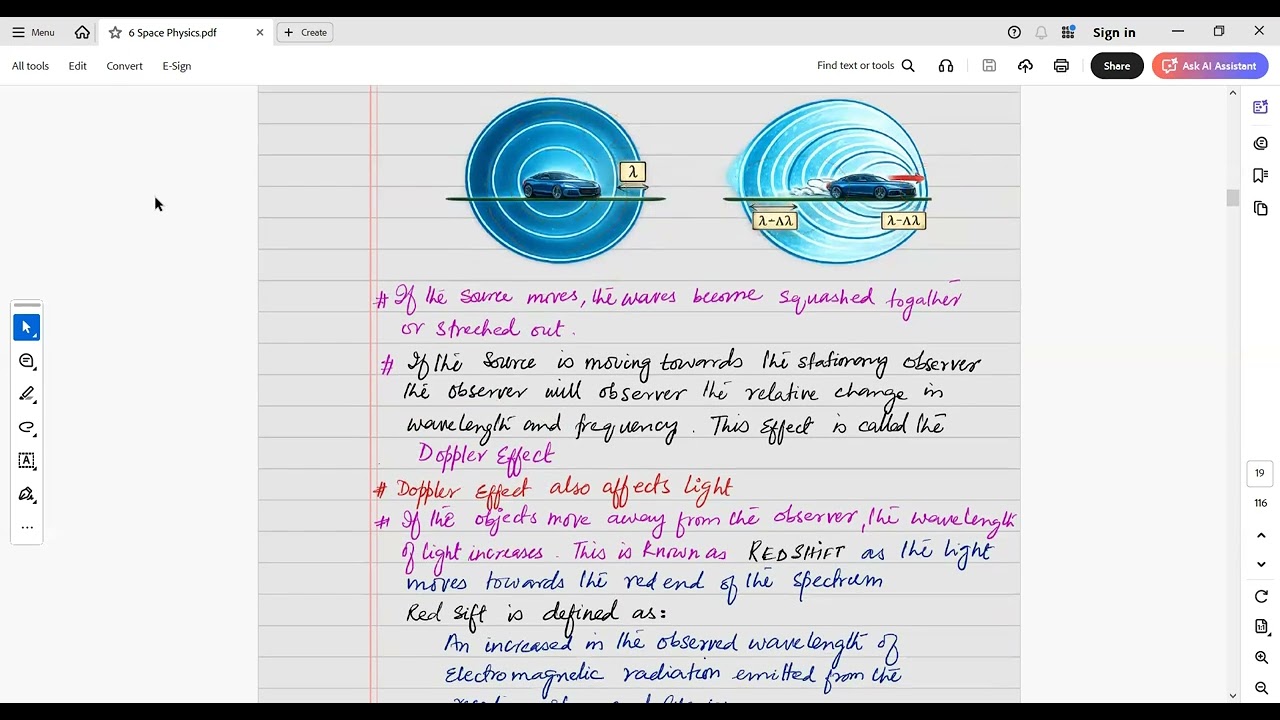 Menu
6 Space Physics.pdf
Create
Sign in
All tools
Edit
Convert
E-Sign
Find text or tools
Share
Ask AI Assistant
λ
λ-Δλ
# If the source moves, the waves become squashed togather
or streched out.
# If the Source is moving towards the stationary observer
the observer will observer the relative change in
wavelength and frequency. This Effect is called the
Doppler Effect
# Doppler Effect also affects light
# If the objects move away from the observer, the wavelength
of light increases. This is known as REDSHIFT as the light
moves towards the red end of the spectrum
Red Sift is defined as:
An increased in the observed wavelength of
Electromagnetic radiation emitted from the
19
116